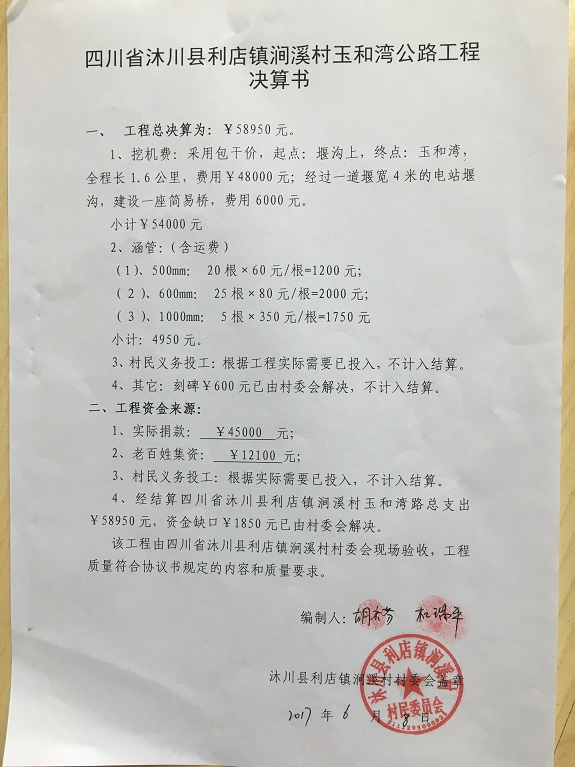 四川省沐川县利店镇涧溪村玉和湾公路工程
决算书
一、 工程总决算为：￥58950 元。
1、挖机费：采用包干价，起点：堰沟上，终点：玉和湾，
全程长 1.6 公里，费用￥48000 元；经过一道堰宽 4 米的电站堰
沟，建设一座简易桥，费用 6000 元。
小计￥54000 元
2、涵管：（含运费）
（1）、500mm： 20 根×60 元/根=1200 元；
（2）、600mm： 25 根×80 元/根=2000 元；
（3）、1000mm： 5 根×350 元/根=1750 元
小计：4950 元。
3、村民义务投工：根据工程实际需要已投入，不计入结算。
4、其它：刻碑￥600 元已由村委会解决，不计入结算。
二、工程资金来源：
1、实际捐款： ￥45000 元；
2、老百姓集资： ￥12100 元；
3、村民义务投工：根据实际需要已投入，不计入结算。
4、经结算四川省沐川县利店镇涧溪村玉和湾路总支出
￥58950 元，资金缺口￥1850 元已由村委会解决。
该工程由四川省沐川县利店镇涧溪村村委会现场验收，工程
质量符合协议书规定的内容和质量要求。
编制人：
沐川县利店镇涧溪村村委会盖章
2017 年 6 月 8 日
沐川县利店镇涧溪村
村民委员会